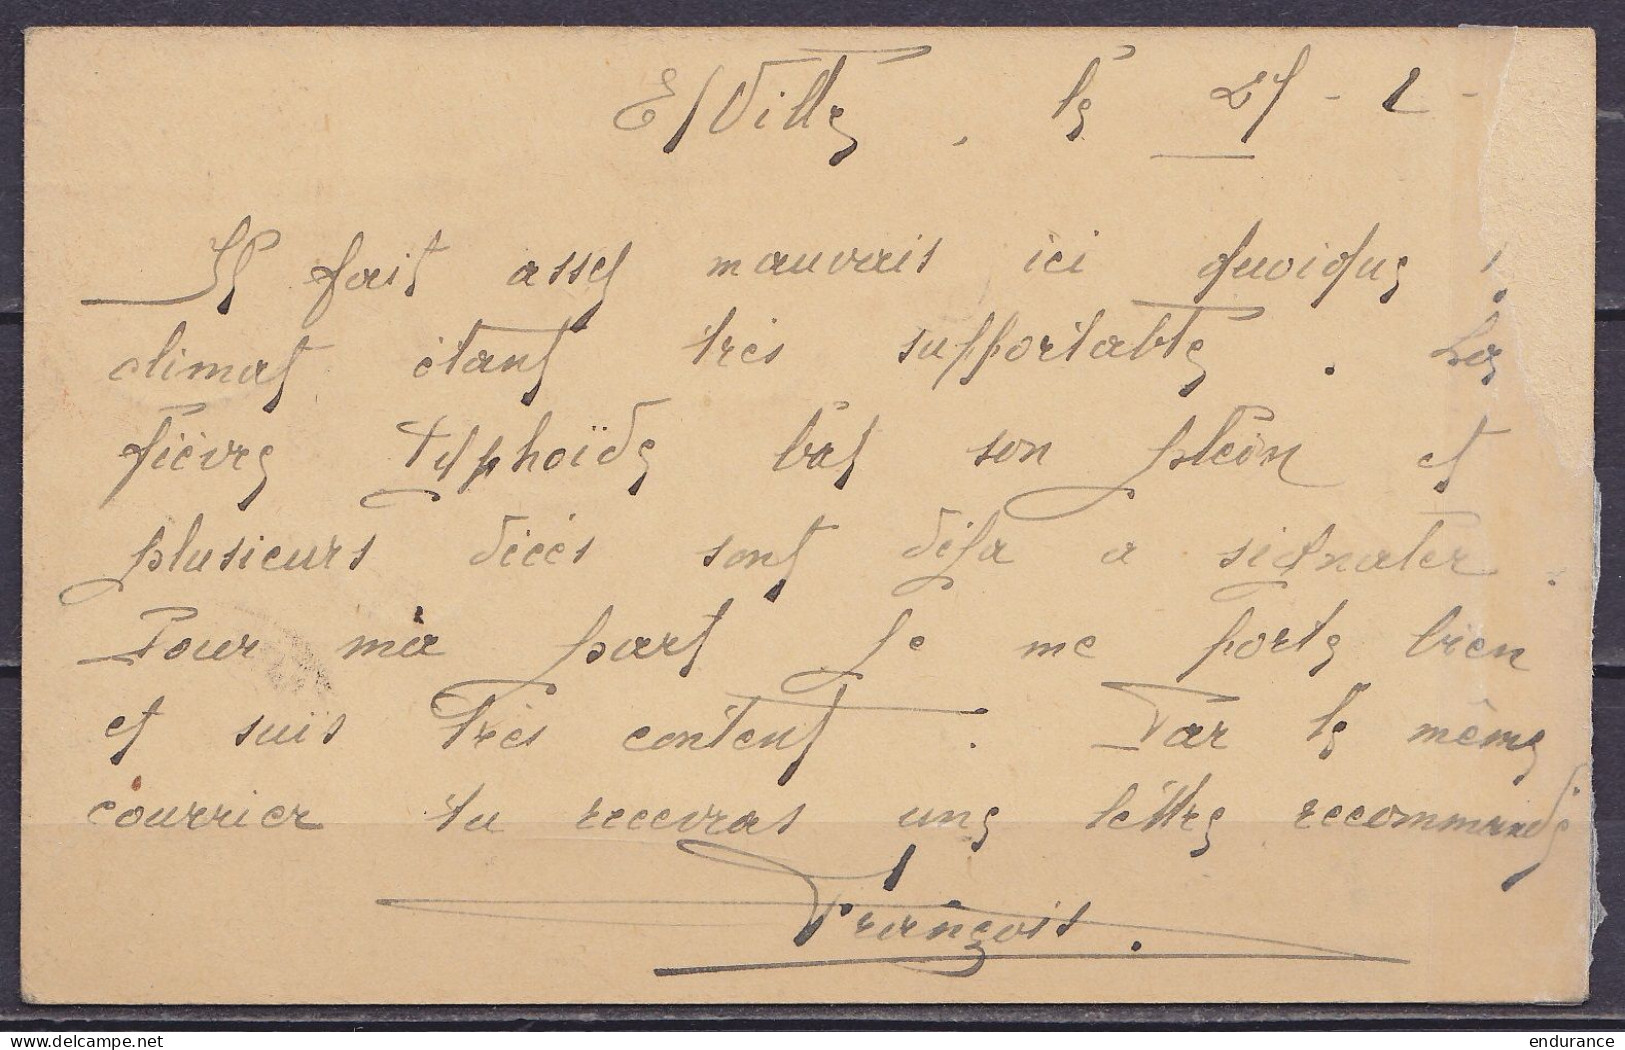 E/Ville, le 27 - 2 -
Il fait assez mauvais ici quoique
climat étant très supportable. La
fièvre typhoïde bat son plein et
plusieurs décès sont déja a signaler.
Pour ma part je me porte bien
et suis très content. Par le même
courrier tu recevras une lettre recommandé
François.
endurance